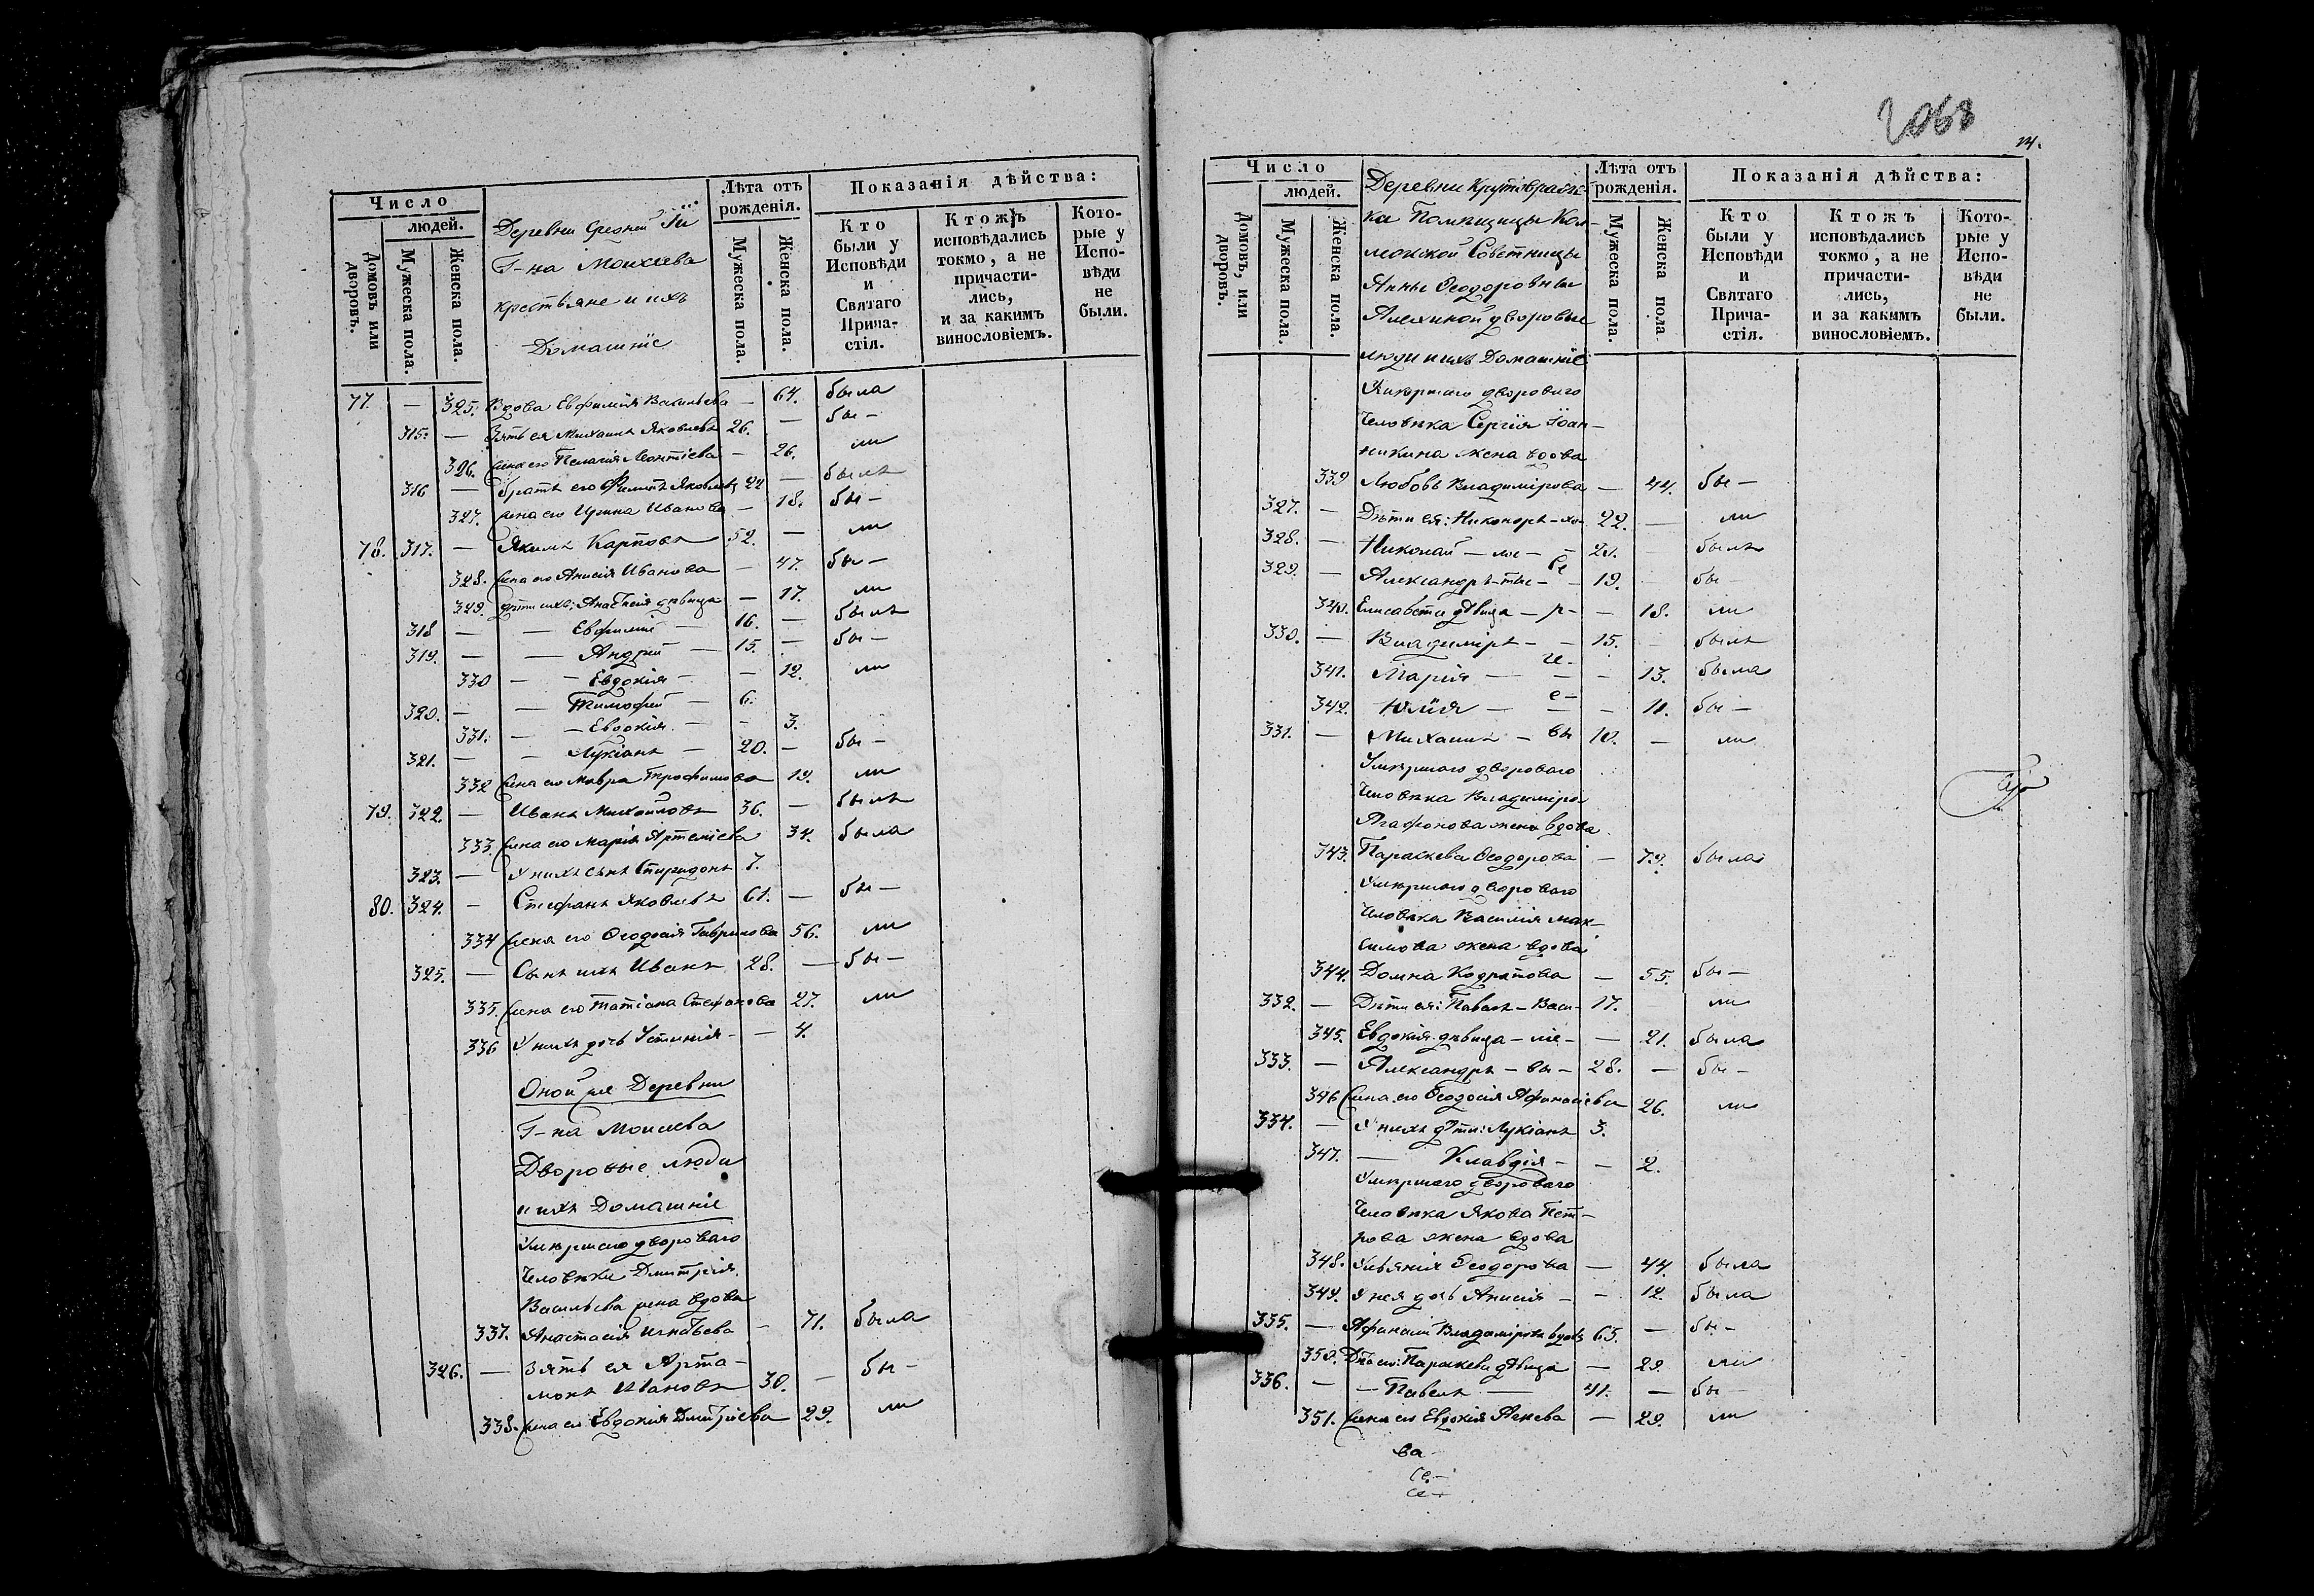 Число
людей.
Домовъ или дворовъ.
Мужеска пола.
Женска пола.
Деревни Средней
Г-на Моисеева
крестьяне и ихъ
Домашніе
Лѣта отъ рожденія.
Мужеска пола.
Женска пола.
Показанія дѣйства:
Кто были у Исповѣди и Святаго Прича- стія.
Ктожъ исповѣдались токмо, а не причасти- лись, и за какимъ винословіемъ.
Кото- рые у Испо- вѣди не были.
77. — 325. Вдова Евфимія Васильева — 64. была
315. — Зять ея Михаилъ Яковлевъ 26. — бы —
326. жена его Пелагія Леонтіева — 26. ли
316 — братъ его Филипъ Яковлевъ 22 — былъ
327. жена его Ирина Иванова — 18. бы —
78. 317. — Якимъ Карповъ 52. — ли
328. жена его Анисія Иванова — 47. бы —
329. дѣти ихъ: Анастасія дѣвица — 17. ли
318 — — Евфимій — 16. — былъ
319. — — Андрей — 15. — бы —
330 — — Евдокія — — 12. ли
320. — — Тимофей — 6.
331. — — Евдокія — — 3.
321. — — Лукіанъ — 20. — бы —
332 жена его Мавра Трофимова 19. ли
79. 322. — Иванъ Михайловъ 36. — былъ
333. жена его Марія Артеміева 34. была
323. — У нихъ сынъ Спиридонъ 7.
80. 324. — Стефанъ Яковлевъ 61. — бы —
334 жена его Ѳеодосія Гаврилова 56. ли
325. — Сынъ ихъ Иванъ 28. — бы —
335. жена его Татіана Стефанова 27. ли
336 У нихъ дочь Устинія — — 4.
Оной же Деревни
Г-на Моисеева
Дворовые люди
и ихъ Домашніе
Умершаго двороваго
Человѣка Дмитрія
Васильева жена вдова
337. Анастасія Игнатьева — 71. была
326. — Зять ея Арта-
монъ Ивановъ 30. — бы —
338. жена его Евдокія Дмитріева 29. ли
2068
14.
Число
людей.
Домовъ, или дворовъ.
Мужеска пола.
Женска пола.
Деревни
ка Помѣщицы Кол-
лежской Совѣтницы
Анны Ѳеодоровны
Алехиной дворовые
люди и ихъ Домашніе
Лѣта отъ рожденія.
Мужеска пола.
Женска пола
Показанія дѣйства:
Кто были у Исповѣди и Святаго Прича- стія.
Ктожъ исповѣдались токмо, а не причасти- лись, и за какимъ винословіемъ.
Кото- рые у Испо- вѣди не были.
Умершаго двороваго
Человѣка Сергія Іоан-
никина жена вдова
339 Любовь Владимірова — 44. бы —
327. — Дѣти ея: Никоноръ — 22. — ли
328. — Николай — — 20. — былъ
329. — Александръ — — 19. — бы —
340. Елисавета дѣвица — — 18. ли
330. — Владиміръ — — 15. — былъ
341. Марія — — — 13. была
342. Юлія — — — 11. бы —
331. — Михаилъ — 10. — ли
Умершаго двороваго
Человѣка Владиміра
Агафонова жена вдова
343. Параскева Ѳеодорова — 79. была
Умершаго двороваго
Человѣка Василія Мак-
симова жена вдова
344. Домна Кодратова — 55. бы —
332. — Дѣти ея: Павелъ — 17. ли
345. Евдокія дѣвица — — 21. была
333. — Александръ — 28. — бы —
346 жена его Ѳеодосія Афанасіева 26. ли
334. — У нихъ дѣти: Лукіанъ 3.
347. — Клавдія — — 2.
Умершаго двороваго
Человѣка Якова Пет-
рова жена вдова
348. Ульянія Ѳеодорова — 44. была
349. У нея дочь Анисія — — 12. была
335. — Афанасій Владиміровъ вдовъ 65. — бы —
350. Дѣти его: Параскева дѣвица — 29. ли
336. — — Павелъ — 41. — бы —
351. жена его Евдокія — 29. ли
ва
се —
се —